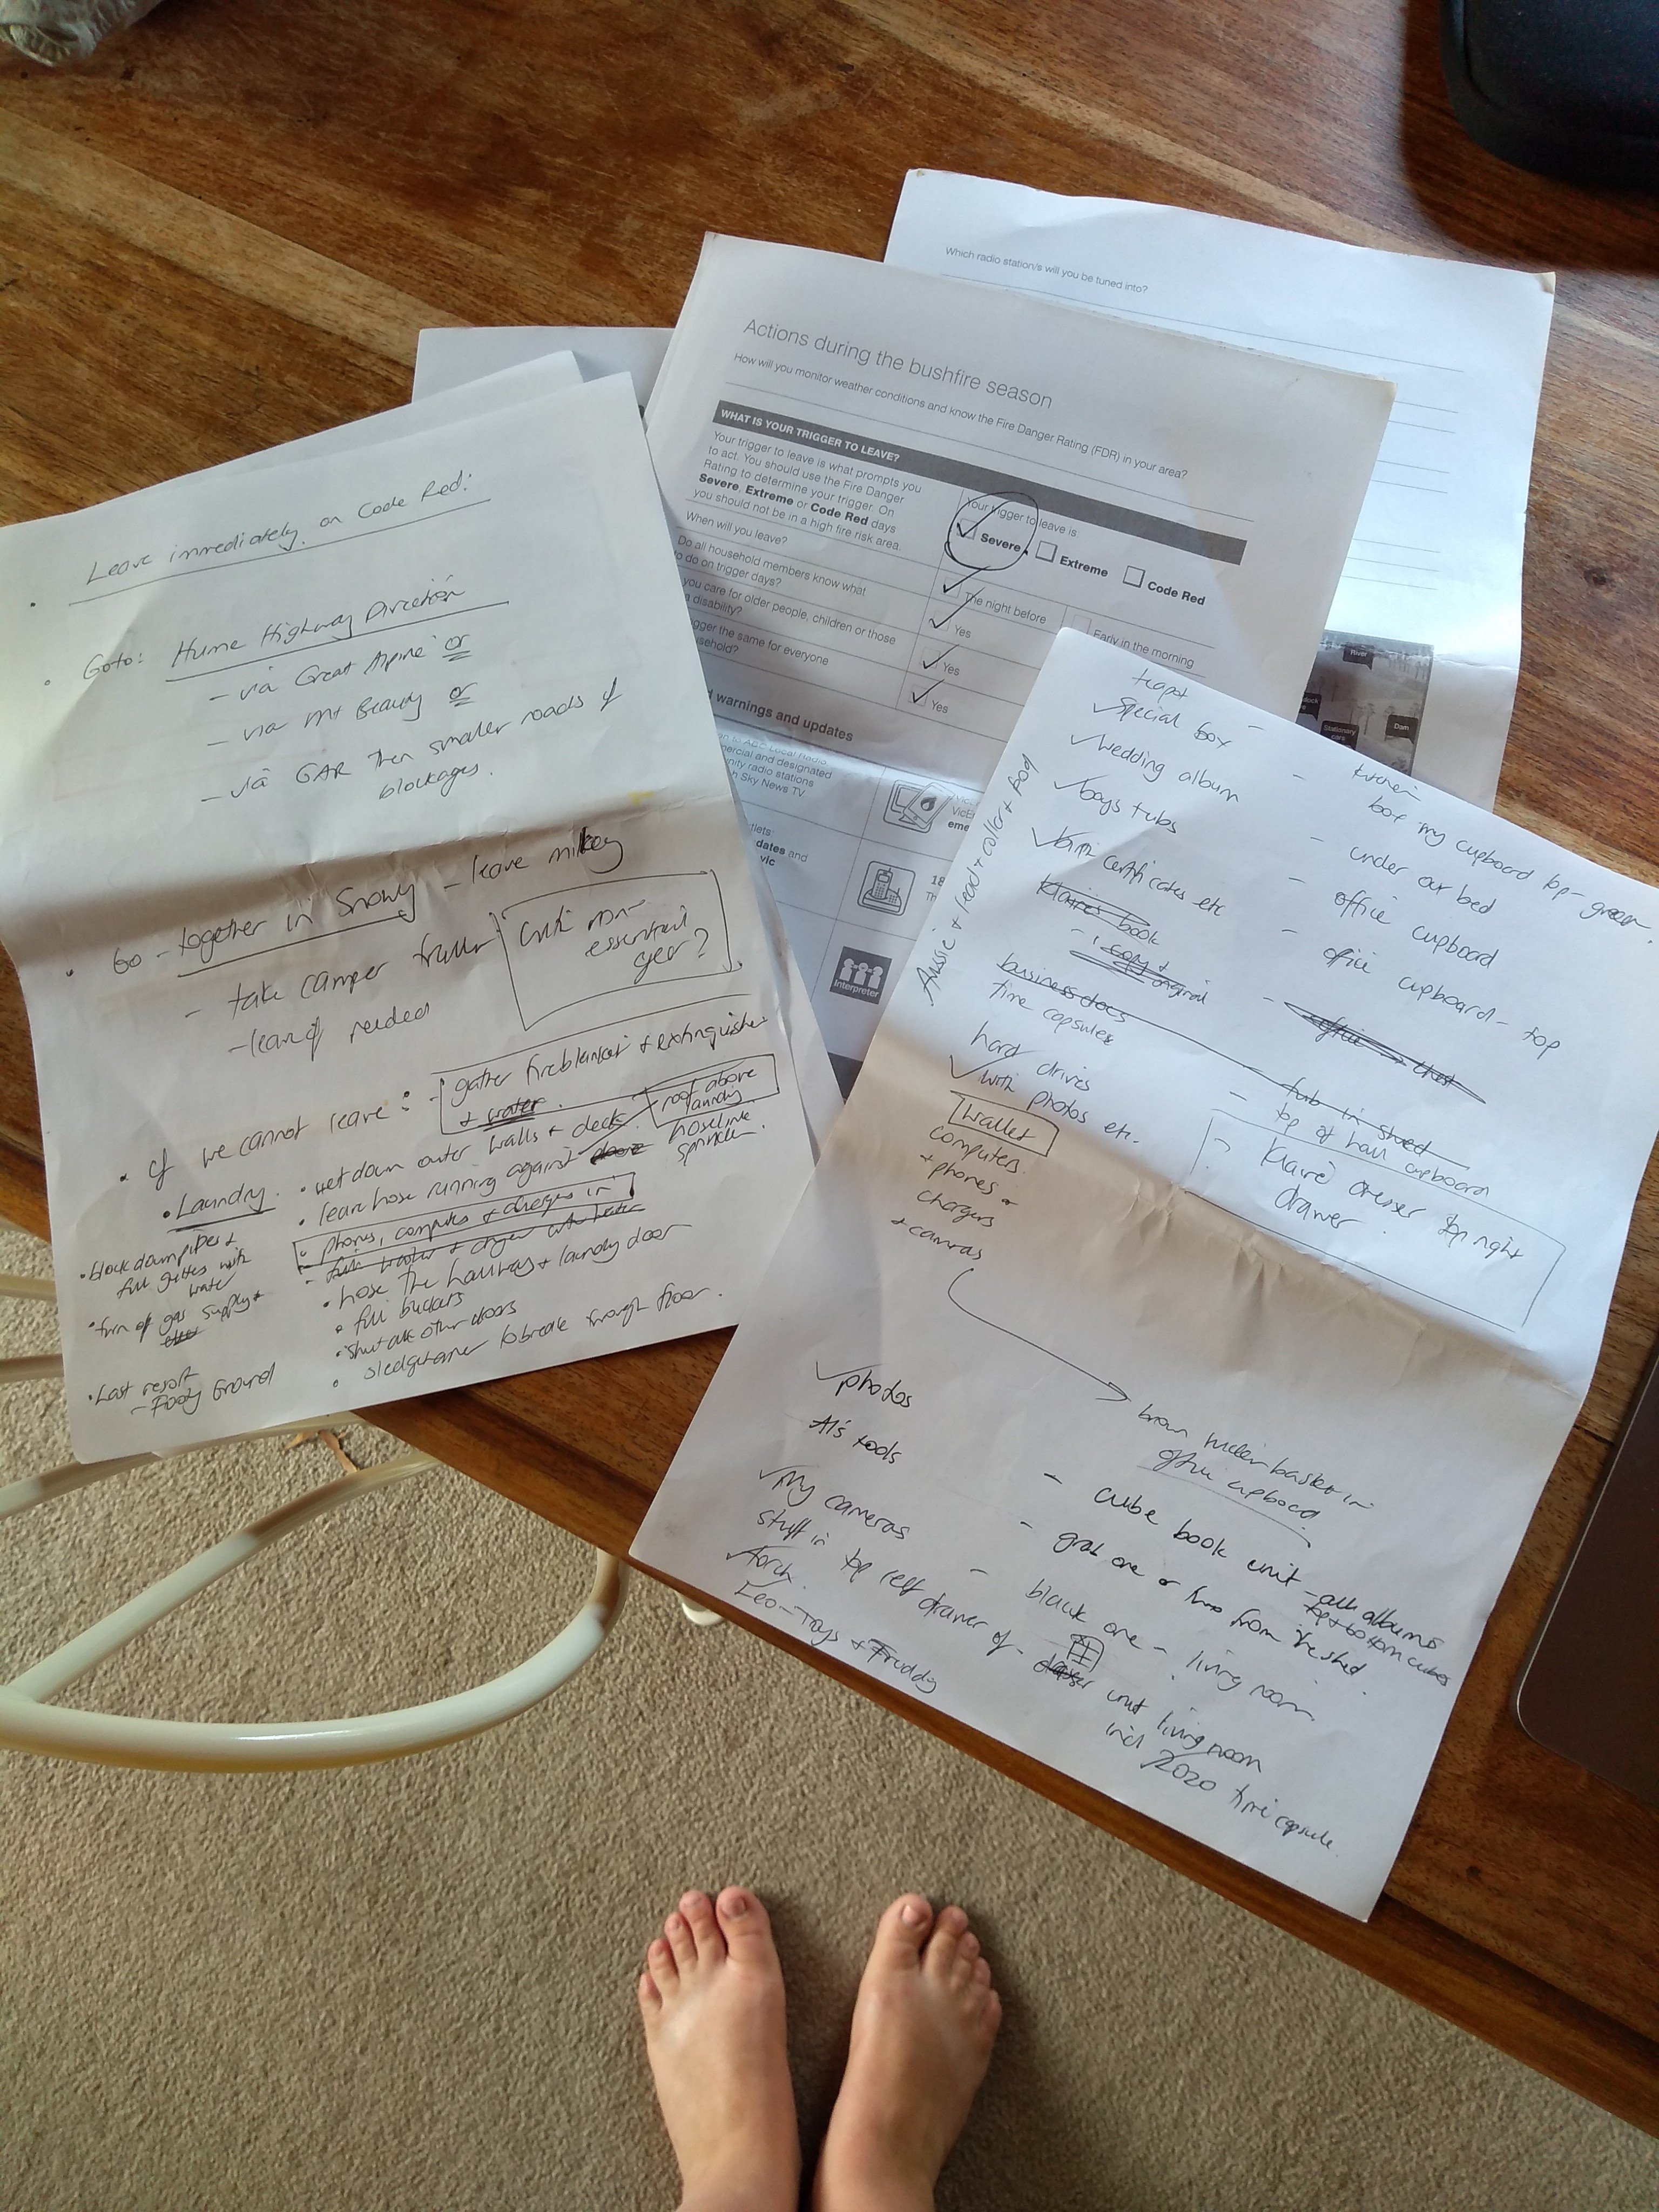 Which radio station/s will you be tuned into?
Actions during the bushfire season
How will you monitor weather conditions and know the Fire Danger Rating (FDR) in your area?
WHAT IS YOUR TRIGGER TO LEAVE?
Your trigger to leave is what prompts you
to act. You should use the Fire Danger
Rating to determine your trigger. On
Severe, Extreme or Code Red days
you should not be in a high fire risk area.
Your trigger to leave is:
Severe
Extreme
Code Red
When will you leave?
The night before
Early in the morning
Do all household members know what
to do on trigger days?
Yes
you care for older people, children or those
disability?
Yes
gger the same for everyone
sehold?
Yes
warnings and updates
Local Radio,
mercial and designated
nity radio stations
Sky News TV
VicE
eme
tlets:
dates and
vic
18
Th
Interpreter
River
Stationary
cars
Dam
Leave immediately on Code Red:
Goto: Hume Highway Direction
- via Great Alpine or
- via Mt Beauty or
- via GAR then smaller roads if
blockages.
Go - together in Snowy - leave mikey
- take camper
- leave if needed
with non-
essential
ger?
If we cannot leave: - gather fireblanket + extinguisher
+ water.
Laundry
wet down outer walls + deck
leave hose running against
roof above
laundry
hoseline
sprinkler.
phones, computers + chargers in
hose the hallway + laundry door
fill buckets
shut all other doors
sledgehamer to break through floor.
block downpipes +
fill gutters with
water
turn off gas supply +
Last resort
- Footy Ground
teapot - kitchen
Special box - box my cupboard top - green
wedding album - under our bed
boys tubs - office cupboard
birth certificates etc - office cupboard - top
Klaire's book
- 1 copy + original
business docs
time capsules - top of hall cupboard
tub in shed
hard drives
with photos etc.
Klaire dresser top right
drawer
Aussie + lead + collar + food
wallet
computers
+ phones +
chargers
+ cameras
office cupboard
photos - cube book unit - all albums
top + bottom cubes
Al's tools - grab one or two from the shed
My cameras - black one - living room
stuff in top left drawer of - unit living room
incl 2020 time capsule.
torch.
Leo - Toys + Fruddy